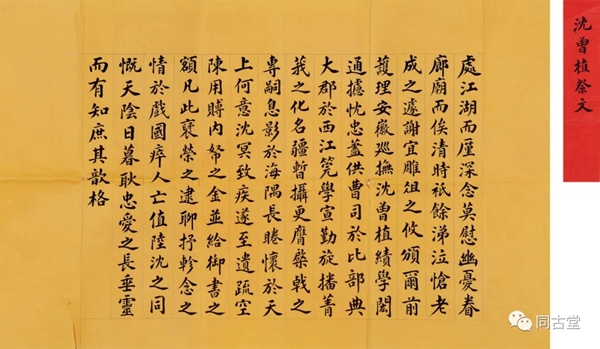 處江湖而廑深念莫慰幽憂眷
廊廟而俟清時祇餘涕泣愴老
成之遽謝宜雕俎之攸頒爾前
護理安徽巡撫沈曾植績學閎
通攄忱忠藎供曹司於比部典
大郡於西江筦學宣勤旋播菁
莪之化名疆暫攝更膺棨戟之
專嗣息影於海隅長睠懷於天
上何意沈冥致疾遂至遺疏空
陳用賻內帑之金並給御書之
額凡此褒榮之逮聊抒軫念之
情於戲國瘁人亡值陸沈之同
慨天陰日暮耿忠愛之長垂靈
而有知庶其歆格
沈曾植祭文
同古堂